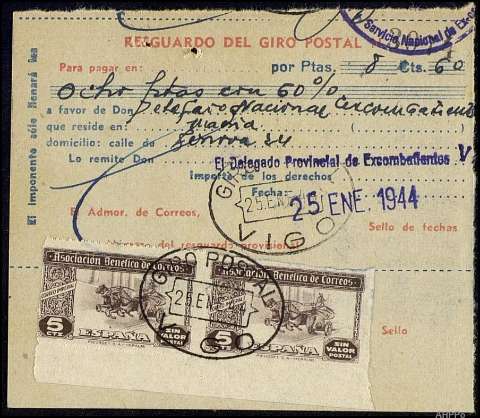 Servicio Nacional de Exco
RESGUARDO DEL GIRO POSTAL
Para pagar en: por Ptas. 8 Cts. 60
Ocho ptas con 60%
a favor de Don Delegado Nacional Excombatientes
que reside en:
domicilio: calle de Genova 24
Lo remite Don El Delegado Provincial de Excombatientes
Importe de los derechos
Fecha:
25 ENE. 1944
El Admor. de Correos, Sello de fechas
del resguardo provisional
El imponente sólo llenará
GIRO
25.EN
VIGO
Asociación Benéfica de Correos Asociación Benéfica de Correos
GIRO POSTAL
25 ENE
VIGO
5 CTS ESPAÑA SIN VALOR POSTAL 5 CTS ESPAÑA SIN VALOR POSTAL
Sello